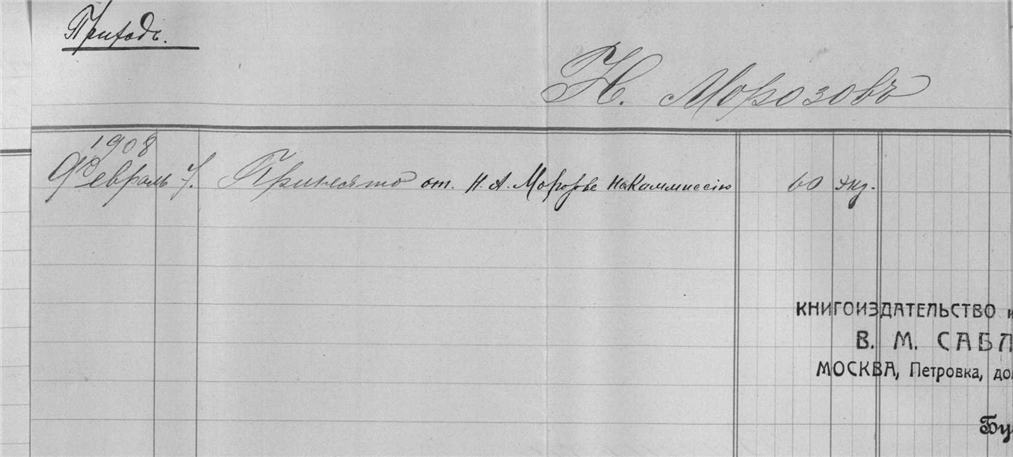 Приходъ.
Н. Морозовъ
1908
Февраль 7. Принято от. Н. А. Морозова на Каммиссію 60 экз.
КНИГОИЗДАТЕЛЬСТВО
В. М. САБЛ
МОСКВА, Петровка, до
Бу